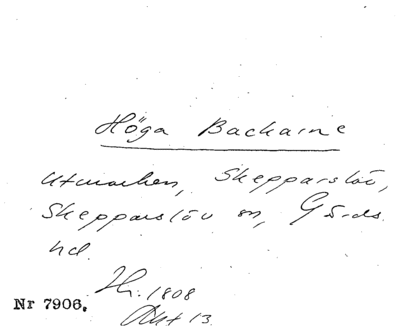 Höga Backarne
Utmarken, Skepparslöv,
Skepparslöv sn, Gärds
hd.
Hr. 1808
Nr 7906.
Akt 13.